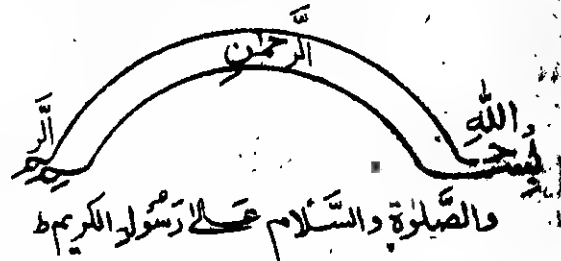 بِسْمِ اللهِ الرَّحْمٰنِ الرَّحِيْمِ
والصَّلٰوة والسَّلام عَلىٰ رَسُولهِ الكريم ط